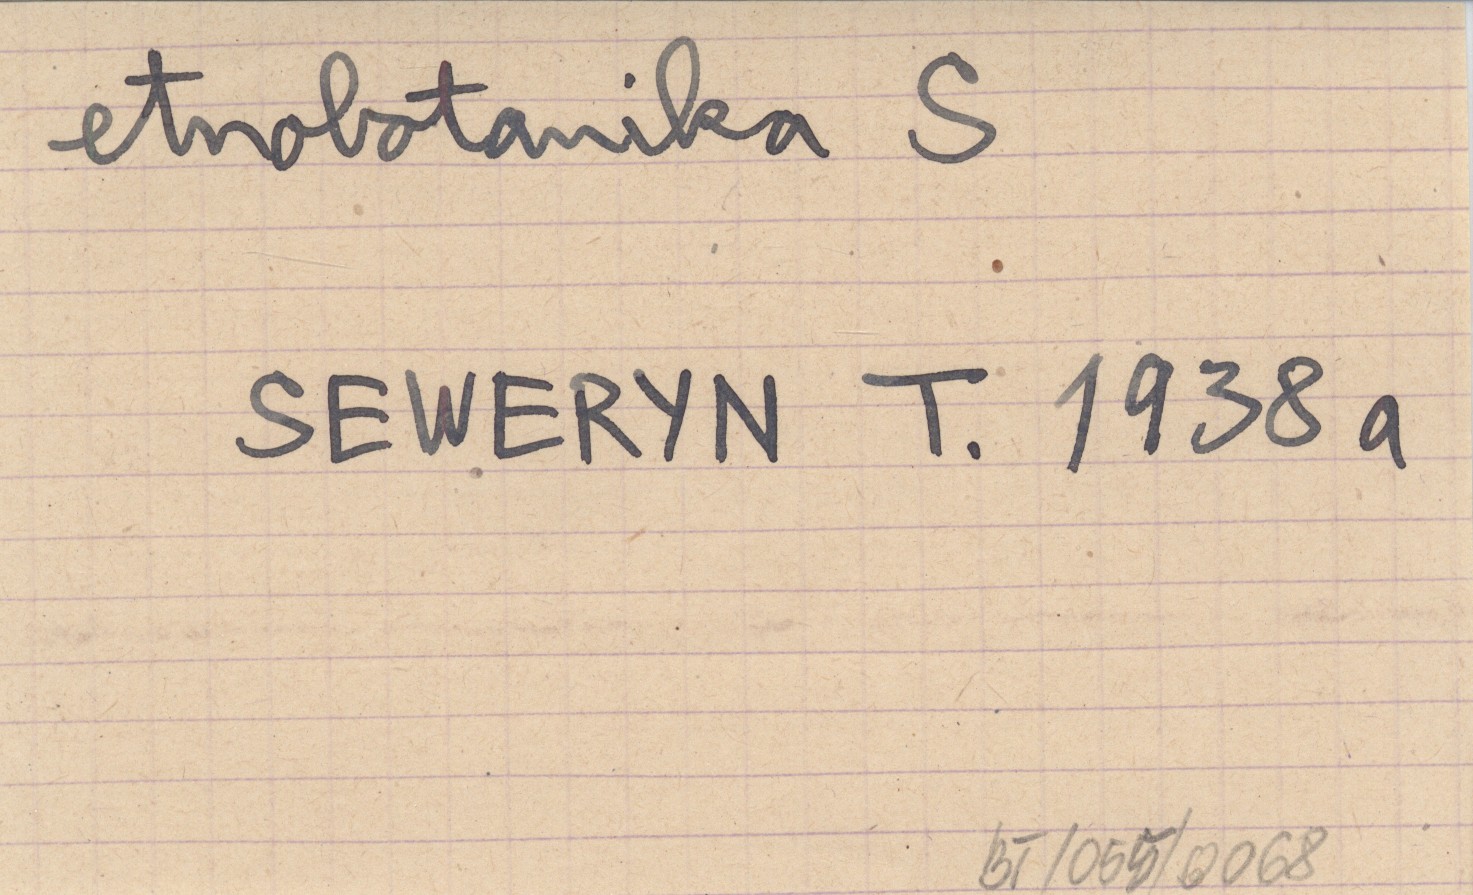 etnobotanika S
SEWERYN T. 1938 a
BT/055/0068